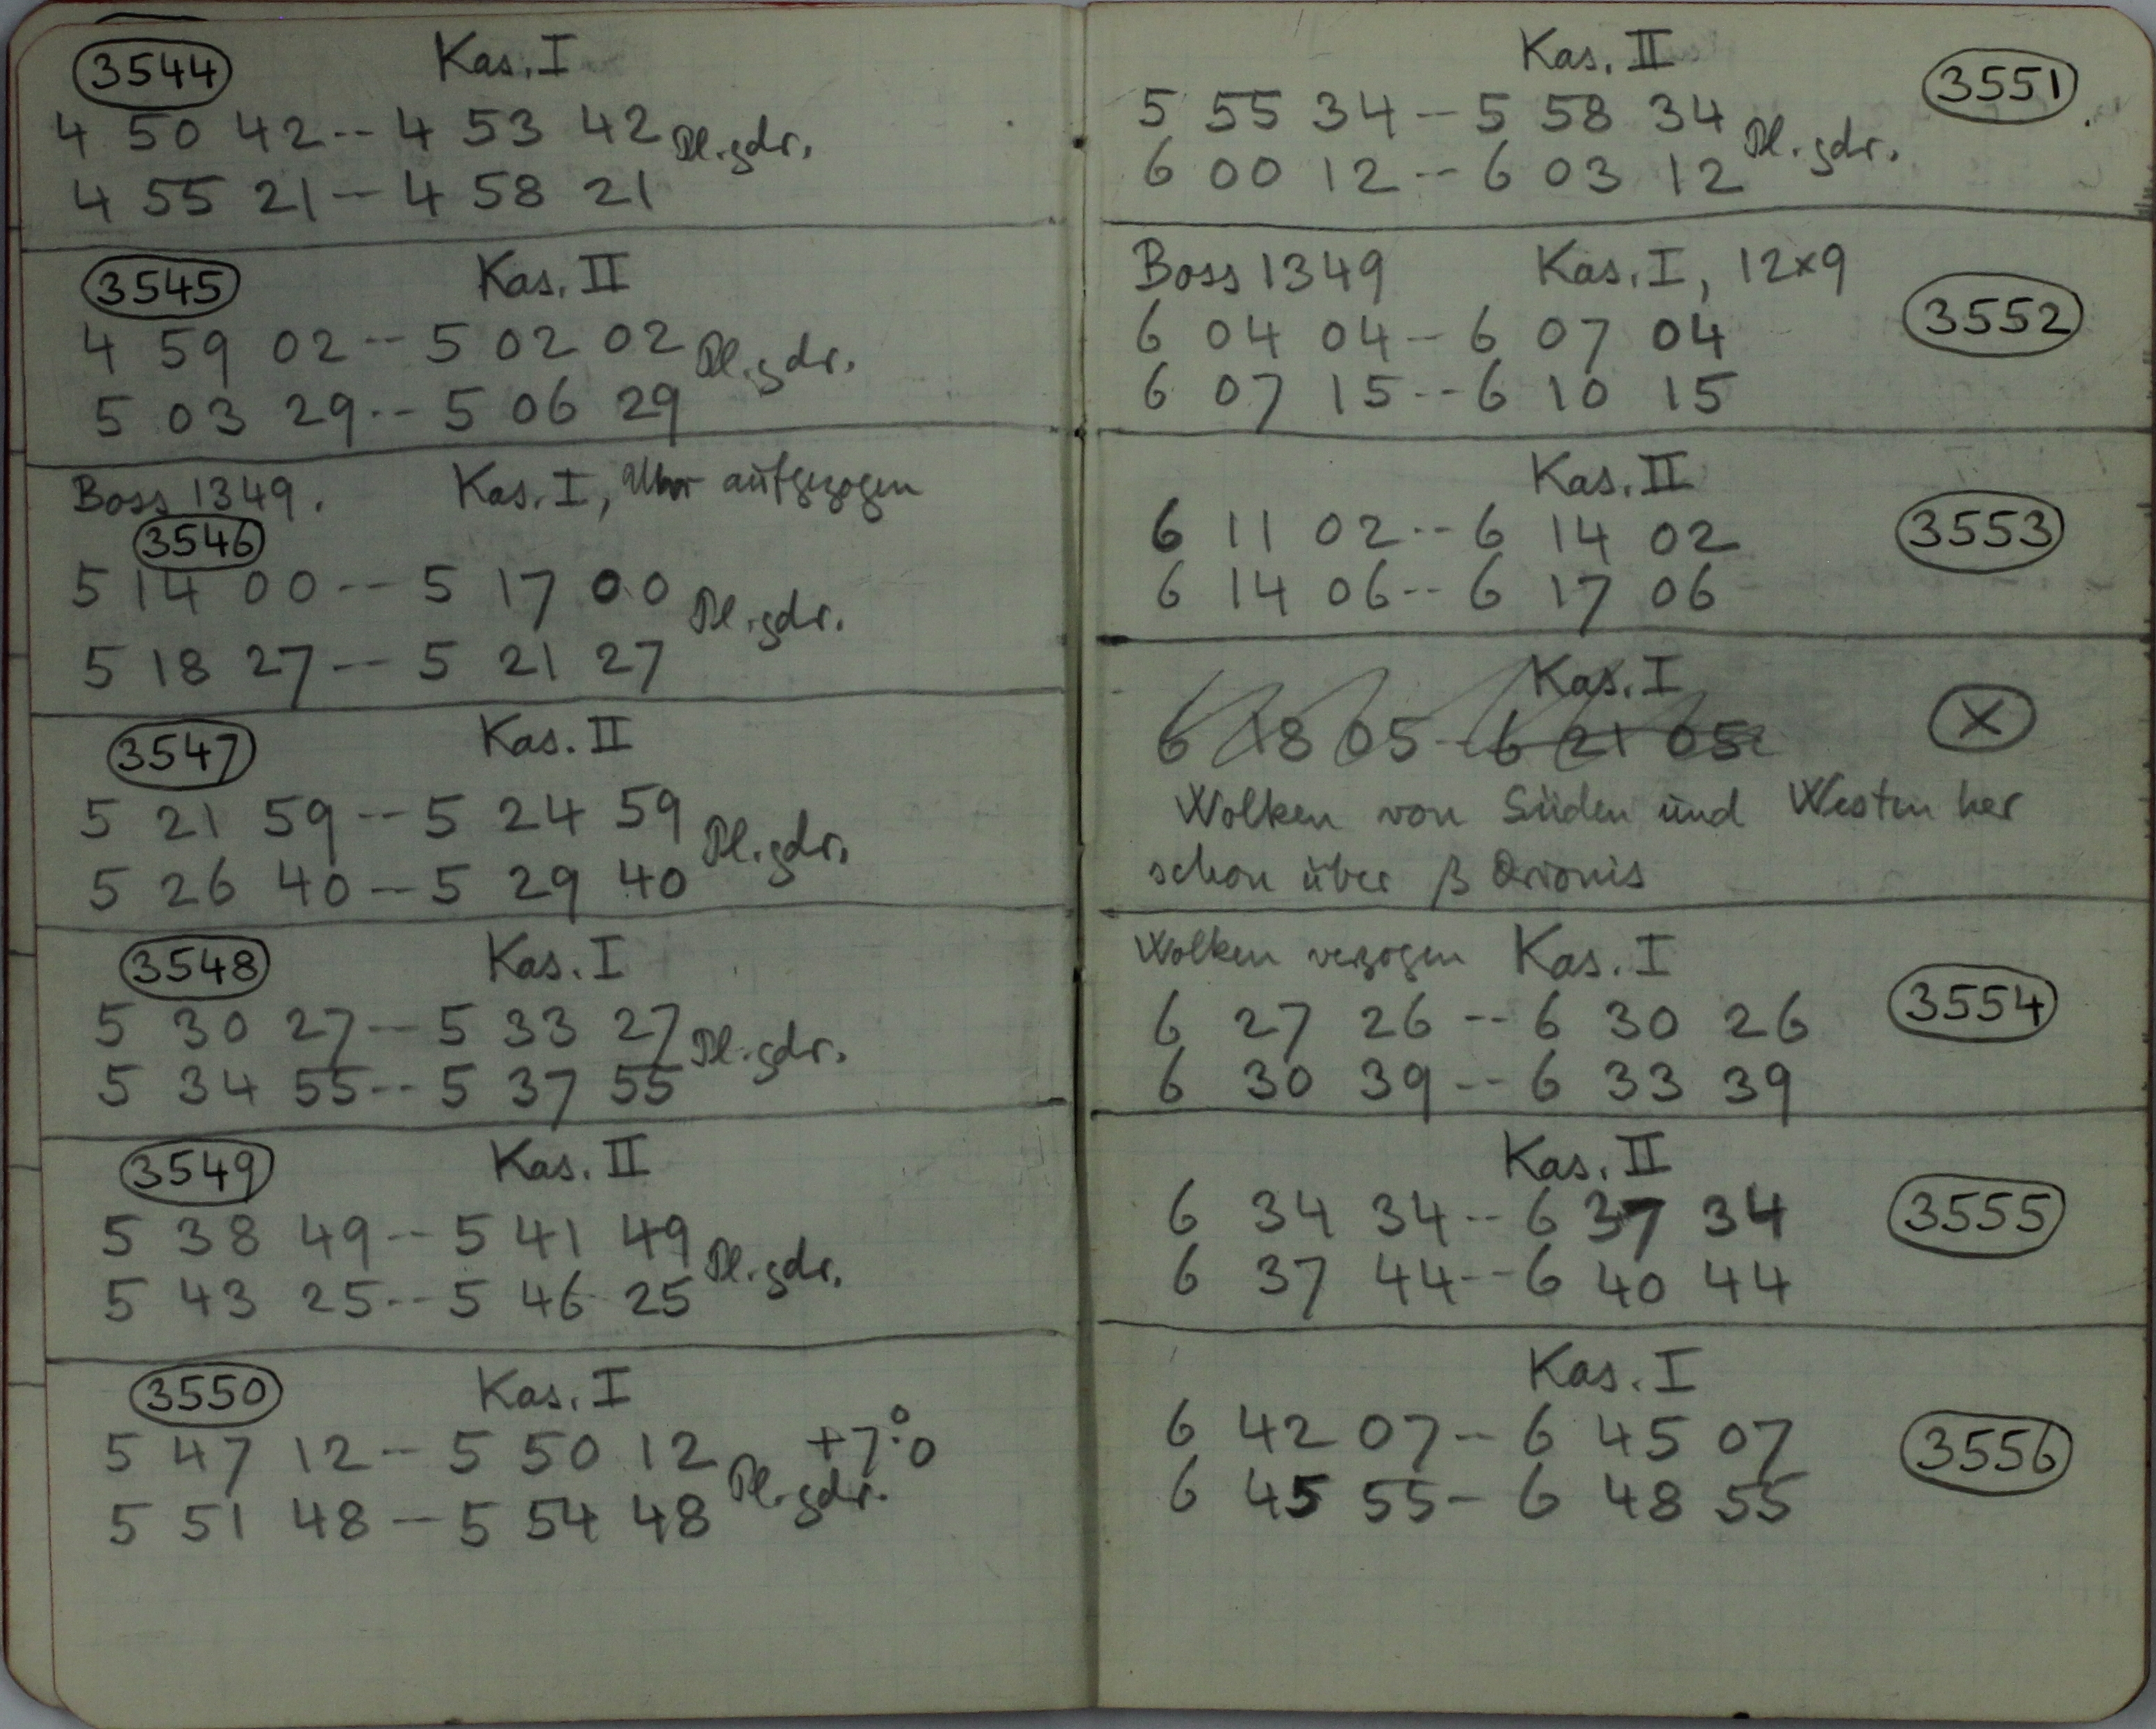 3544 Kas. I
4 50 42 -- 4 53 42 Pl. gdr.
4 55 21 -- 4 58 21
3545 Kas. II
4 59 02 -- 5 02 02 Pl. gdr.
5 03 29 -- 5 06 29
Boss 1349. Kas. I, Uhr aufgezogen
3546
5 14 00 -- 5 17 00 Pl. gdr.
5 18 27 -- 5 21 27
3547 Kas. II
5 21 59 -- 5 24 59 Pl. gdr.
5 26 40 -- 5 29 40
3548 Kas. I
5 30 27 -- 5 33 27 Pl. gdr.
5 34 55 -- 5 37 55
3549 Kas. II
5 38 49 -- 5 41 49 Pl. gdr.
5 43 25 -- 5 46 25
3550 Kas. I
5 47 12 -- 5 50 12 Pl. gdr. +7°.0
5 51 48 -- 5 54 48
Kas. II 3551
5 55 34 -- 5 58 34 Pl. gdr.
6 00 12 -- 6 03 12
Boss 1349 Kas. I, 12x9
6 04 04 -- 6 07 04 3552
6 07 15 -- 6 10 15
Kas. II
6 11 02 -- 6 14 02 3553
6 14 06 -- 6 17 06
Kas. I
6 18 05 -- 6 21 05 X
Wolken von Süden und Westen her
schon über β Orionis
Wolken verzogen Kas. I
6 27 26 -- 6 30 26 3554
6 30 39 -- 6 33 39
Kas. II
6 34 34 -- 6 37 34 3555
6 37 44 -- 6 40 44
Kas. I
6 42 07 -- 6 45 07 3556
6 45 55 -- 6 48 55